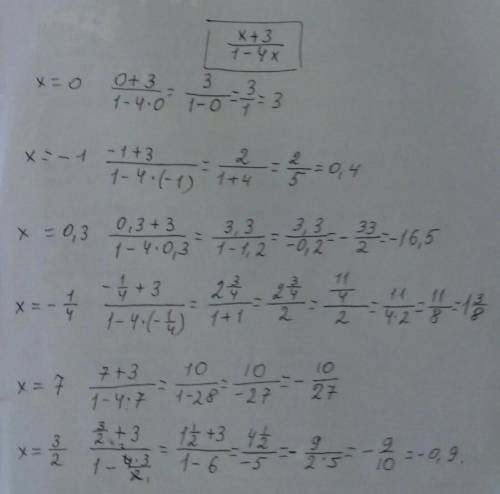 x+3 / 1-4x
x=0 (0+3)/(1-4·0) = 3/(1-0) = 3/1 = 3
x=-1 (-1+3)/(1-4·(-1)) = 2/(1+4) = 2/5 = 0,4
x = 0,3 (0,3+3)/(1-4·0,3) = 3,3/(1-1,2) = 3,3/-0,2 = -33/2 = -16,5
x=-1/4 (-1/4+3)/(1-4·(-1/4)) = 2 3/4/(1+1) = 2 3/4/2 = 11/4/2 = 11/(4·2) = 11/8 = 1 3/8
x = 7 (7+3)/(1-4·7) = 10/(1-28) = 10/-27 = -10/27
x = 3/2 (3/2+3)/(1-4·3/2) = (1 1/2+3)/(1-6) = 4 1/2/-5 = -9/(2·5) = -9/10 = -0,9.